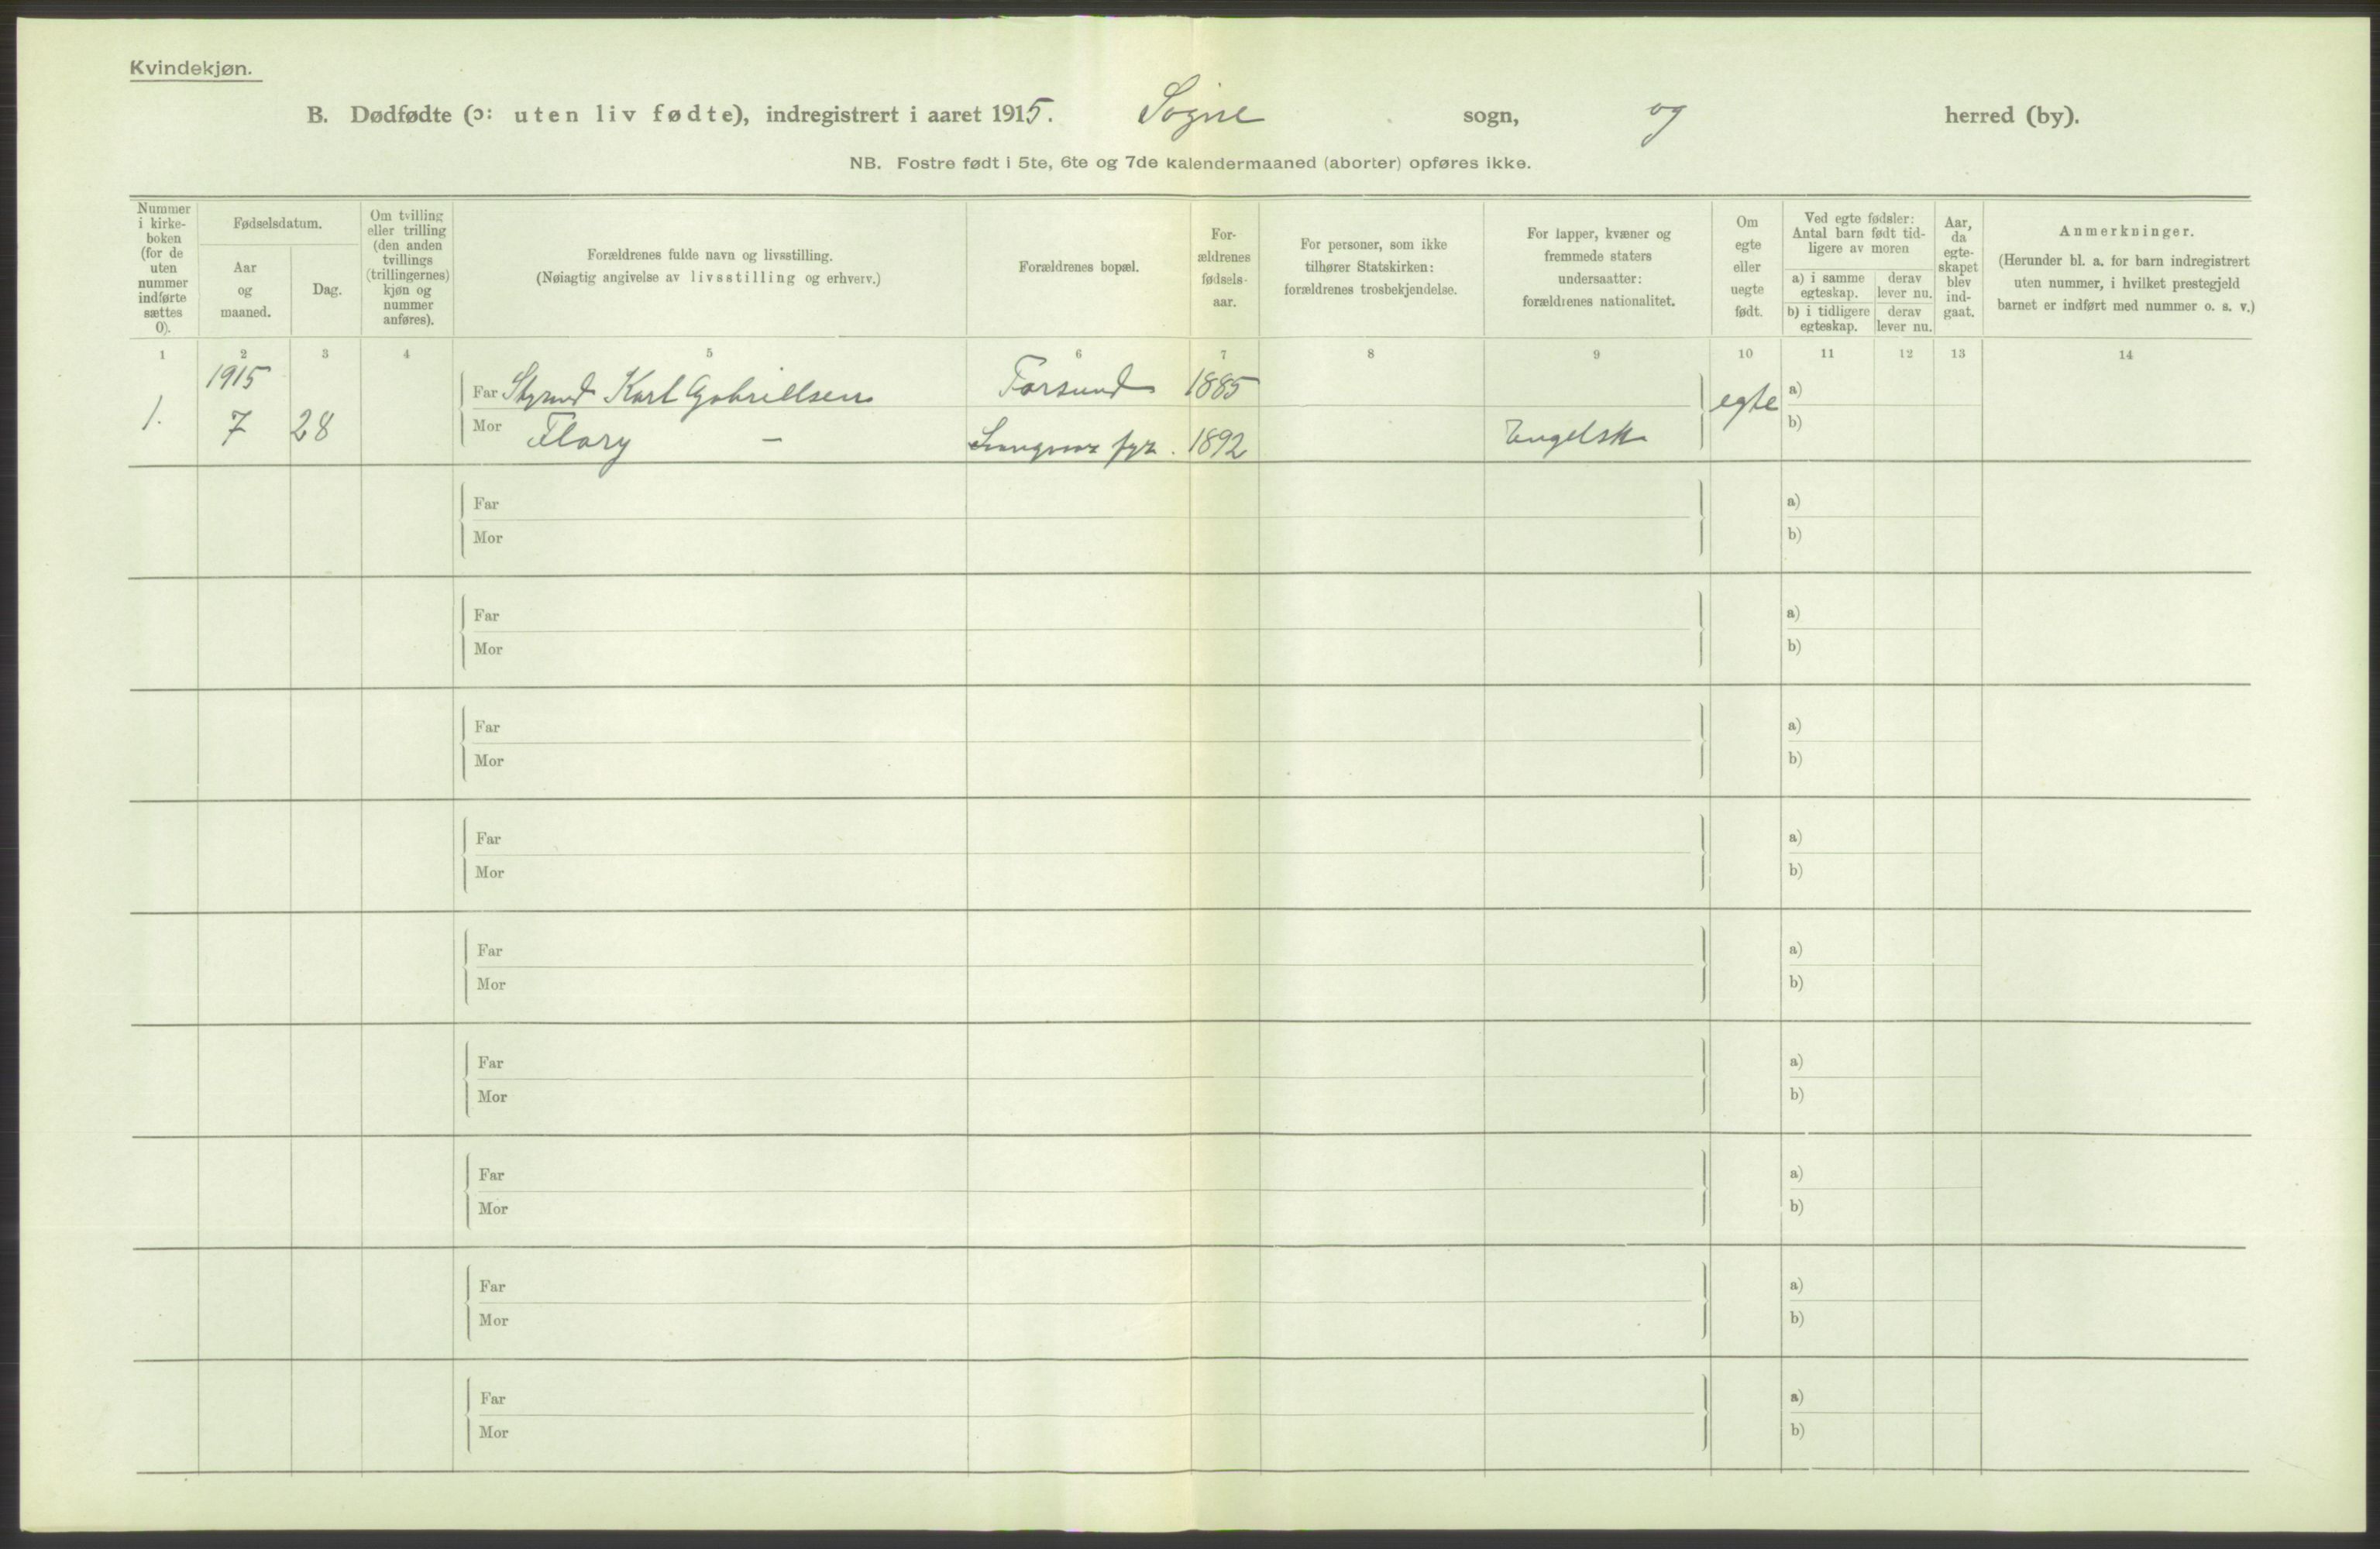 Kvindekjøn.
B. Dødfødte (ɔ: uten liv fødte), indregistrert i aaret 1915. Søgne sogn, og herred (by).
NB. Fostre født i 5te, 6te og 7de kalendermaaned (aborter) opføres ikke.
Nummer i kirke-boken (for de uten nummer indførte sættes 0).
Fødselsdatum.
Aar og maaned.
Dag.
Om tvilling eller trilling (den anden tvillings (trillingernes) kjøn og nummer anføres).
Forældrenes fulde navn og livsstilling.
(Nøiagtig angivelse av livsstilling og erhverv.)
Forældrenes bopæl.
For-ældrenes fødsels-aar.
For personer, som ikke tilhører Statskirken: forældrenes trosbekjendelse.
For lapper, kvæner og fremmede staters undersaatter: forældrenes nationalitet.
Om egte eller uegte født.
Ved egte fødsler: Antal barn født tid-ligere av moren
a) i samme egteskap.
derav lever nu.
b) i tidligere egteskap.
derav lever nu.
Aar, da egte-skapet blev ind-gaat.
Anmerkninger.
(Herunder bl. a. for barn indregistrert uten nummer, i hvilket prestegjeld barnet er indført med nummer o. s. v.)
1 2 3 4 5 6 7 8 9 10 11 12 13 14
1915
1. 7 28
Far Styrmd Karl Gabrielsen Farsund 1885 egte a)
Mor Flory — fyr. 1892 Engelsk b)
Far a)
Mor b)
Far a)
Mor b)
Far a)
Mor b)
Far a)
Mor b)
Far a)
Mor b)
Far a)
Mor b)
Far a)
Mor b)
Far a)
Mor b)
Far a)
Mor b)